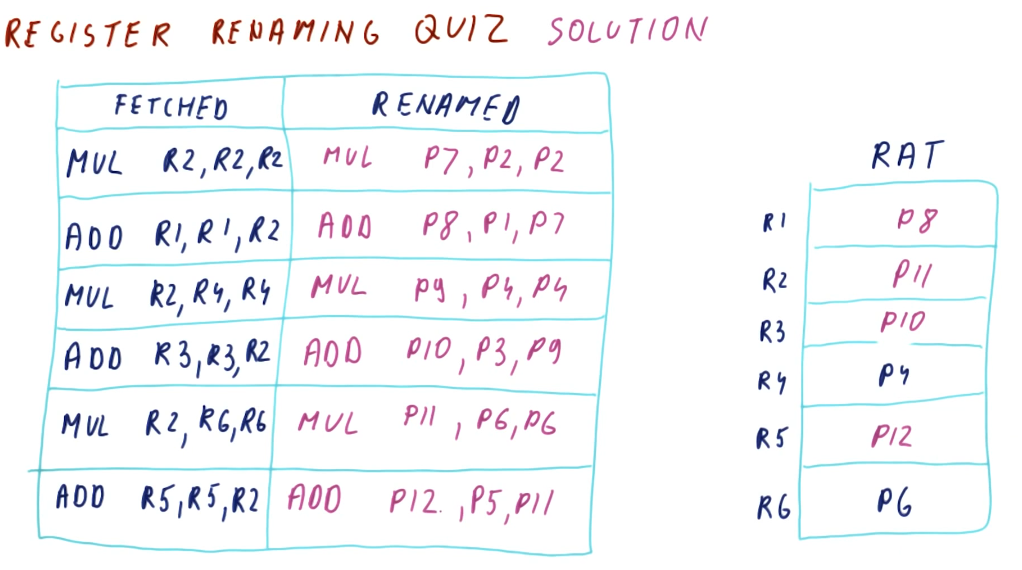 REGISTER RENAMING QUIZ SOLUTION
FETCHED RENAMED
MUL R2, R2, R2 MUL P7, P2, P2
ADD R1, R1, R2 ADD P8, P1, P7
MUL R2, R4, R4 MUL P9, P4, P4
ADD R3, R3, R2 ADD P10, P3, P9
MUL R2, R6, R6 MUL P11, P6, P6
ADD R5, R5, R2 ADD P12, P5, P11
RAT
R1 P8
R2 P11
R3 P10
R4 P4
R5 P12
R6 P6